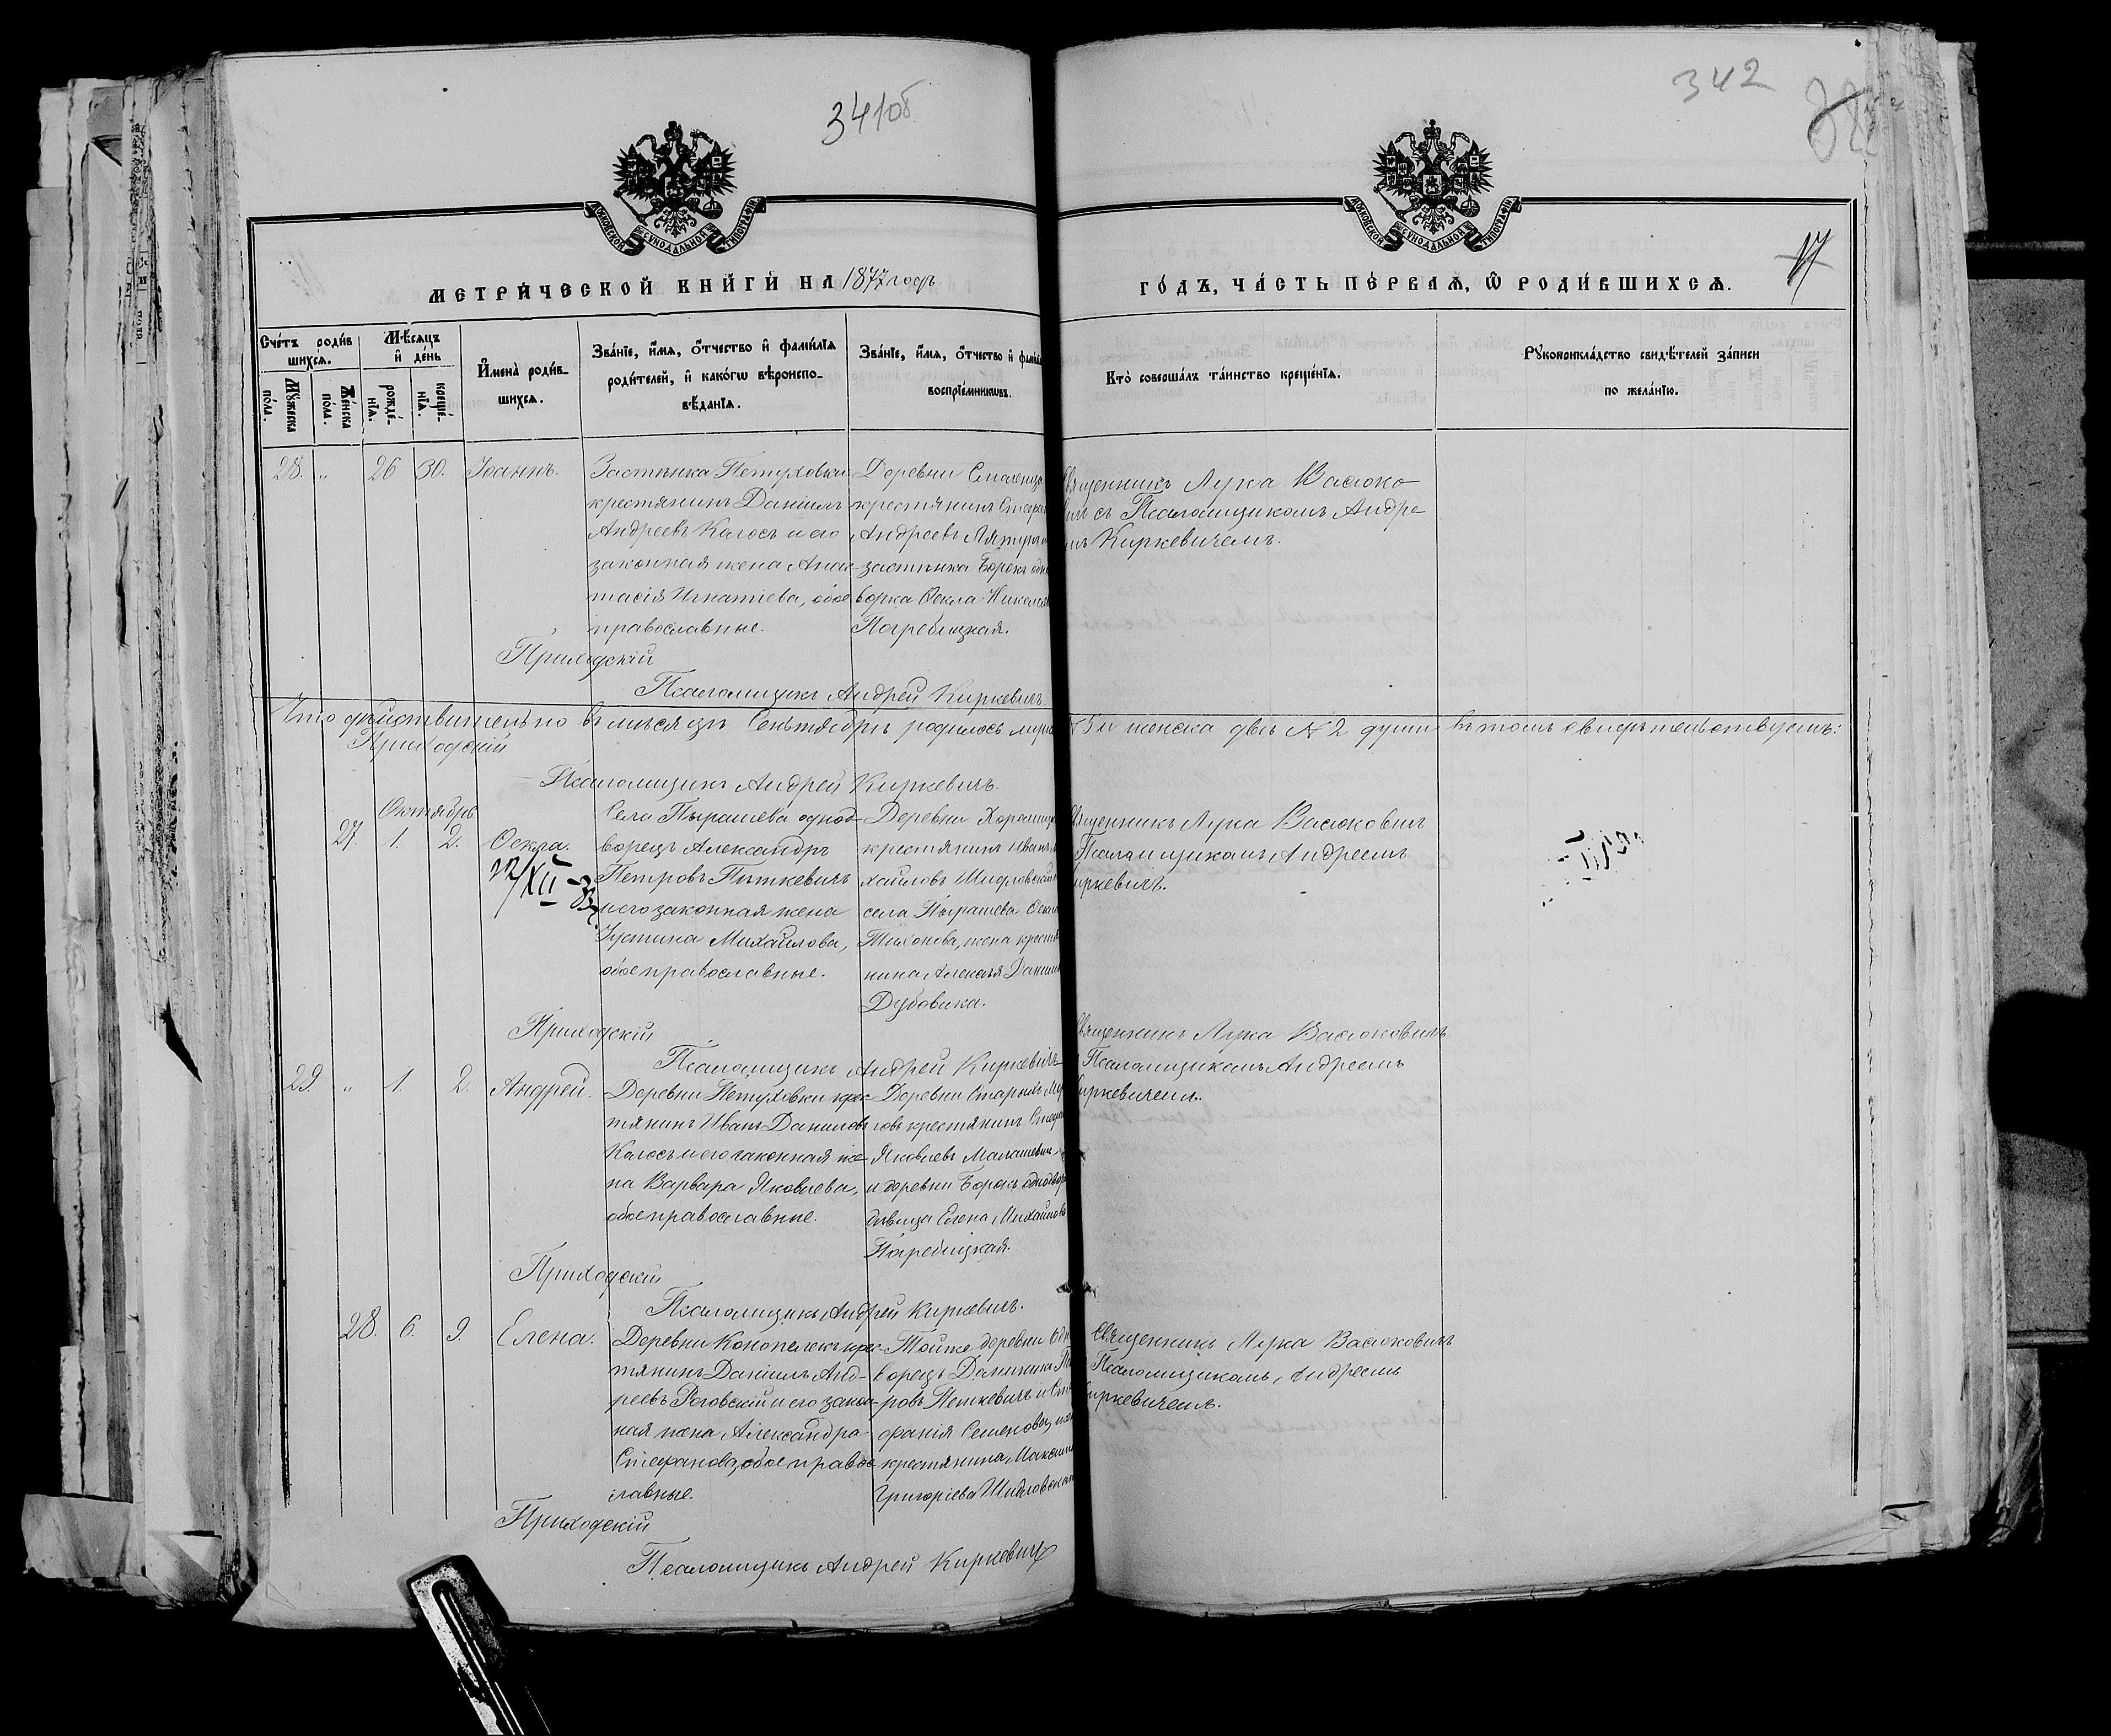 341об
342
МОСКОВСКОЙ СУНОДАЛЬНОЙ ТИПОГРАФІИ
МОСКОВСКОЙ СУНОДАЛЬНОЙ ТИПОГРАФІИ
МЕТРИ́ЧЕСКОЙ КНИ́ГИ НА 1877 годъ.
ГО́ДЪ, ЧА́СТЬ ПЕ́РВАѦ, Ѿ РОДИ́ВШИХСѦ.
17
Сче́тъ роди́в
шихсѧ.
Мѣ́сѧцъ
и҆ де́нь
Мꙋ́жеска
по́ла.
Же́нска
по́ла.
рожде́-
нїѧ.
креще́-
нїѧ.
И҆мена̀ роди́в-
шихсѧ.
Зва́нїе, и҆́мѧ, ѻ҆́тчество и҆ фами́лїѧ
роди́телей, и҆ како́гѡ вѣроиспо-
вѣ́данїѧ.
Зва́нїе, и҆́мѧ, ѻ҆́тчество и҆ фами́лїѧ
воспрїе́мникѡвъ.
Кто̀ соверша́лъ та́инство креще́нїѧ.
Рꙋкоприкла́дство свидѣ́телей за́писи
по жела́нїю.
28. „ 26 30. Іоаннъ.
Застѣнка Петуховки
крестянинъ Даніилъ
Андреевъ Калосъ и его
законная жена Анас-
тасія Игнатіева, обое
православные.
Деревни
крестянинъ
Андреевъ
застѣнка Борокъ одно
ворка Ѳекла
Погребицкая.
Священникъ Лука Васюко-
вичъ съ Псаломщикомъ Андре-
емъ Киркевичемъ.
Приходскій
Псаломщикъ Андрей Киркевичъ.
Что дѣйствительно въ мѣсяцѣ Сентябрѣ родилось
5 и женска двѣ № 2 души въ томъ свидѣтельствуемъ:
Приходскій
Псаломщикъ Андрей Киркевичъ.
Октябрь
27. 1. 2. Ѳекла.
22/XII
Села Пырашева однод-
ворецъ Александръ
Петровъ Петкевичъ
и его законная жена
Іустина Михайлова,
обое православные.
Деревни
крестянинъ Иванъ
хайловъ Шидловскій
села Пырашева Ѳекла
Тихонова, жена крестя
нина Алексѣя Даниил
Дубовика.
Священникъ Лука Васюковичъ
Псаломщикомъ Андреемъ
иркевичъ.
Приходскій
Псаломщикъ Андрей Киркевичъ
29 „ 1. 2. Андрей.
Деревни Петуховки крес-
тянинъ Иванъ Даниловъ
Калосъ и его законная же-
на Варвара Яковлева,
обое православные.
Деревни Старыхъ
говъ крестянинъ
Яковлевъ Малашевич
и деревни Борокъ однодвор
дѣвица Елена Михайлова
Погребицкая.
Священникъ Лука Васюковичъ
Псаломщикомъ Андреемъ
иркевичемъ.
Приходскій
Псаломщикъ Андрей Киркевичъ.
28. 6. 9. Елена.
Деревни Конопелекъ крес-
тянинъ Даніилъ Анд-
реевъ Роговскій и его закон-
ная жена Александра
Стефанова, обое правос-
лавные.
Тойже деревни одн
ворецъ
ровъ Петкевичъ и
фанія Семенова, жен
крестянина Максим
Григоріева Шидловскаго
Священникъ Лука Васюковичъ
Псаломщикомъ Андреемъ
иркевичемъ.
Приходскій
Псаломщикъ Андрей Киркевичъ